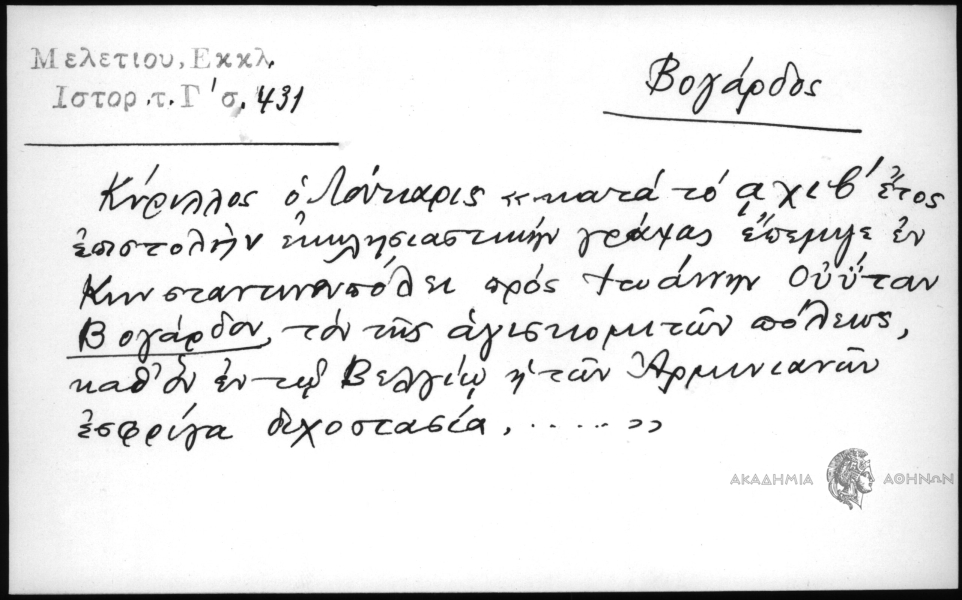 Μελετιου, Εκκλ.
Ιστορ. τ. Γ' σ. 431
Βογάρδος
Κύριλλος ὁ Λούκαρις «κατά τό ͵αχιβ' ἔτος
ἐπιστολήν ἐκκλησιαστικήν γράψας ἔπεμψε ἐν
Κωνσταντινουπόλει πρός Ἰωάννην Οὐΰταν
Βογάρδον, τόν τῆς ἁγισκομιτῶν πόλεως,
καθ' ὅν ἐν τῷ Βελγίῳ ἡ τῶν Ἀρμινιανῶν
ἐσφρίγα διχοστασία, ...... »
ΑΚΑΔΗΜΙΑ ΑΘΗΝΩΝ